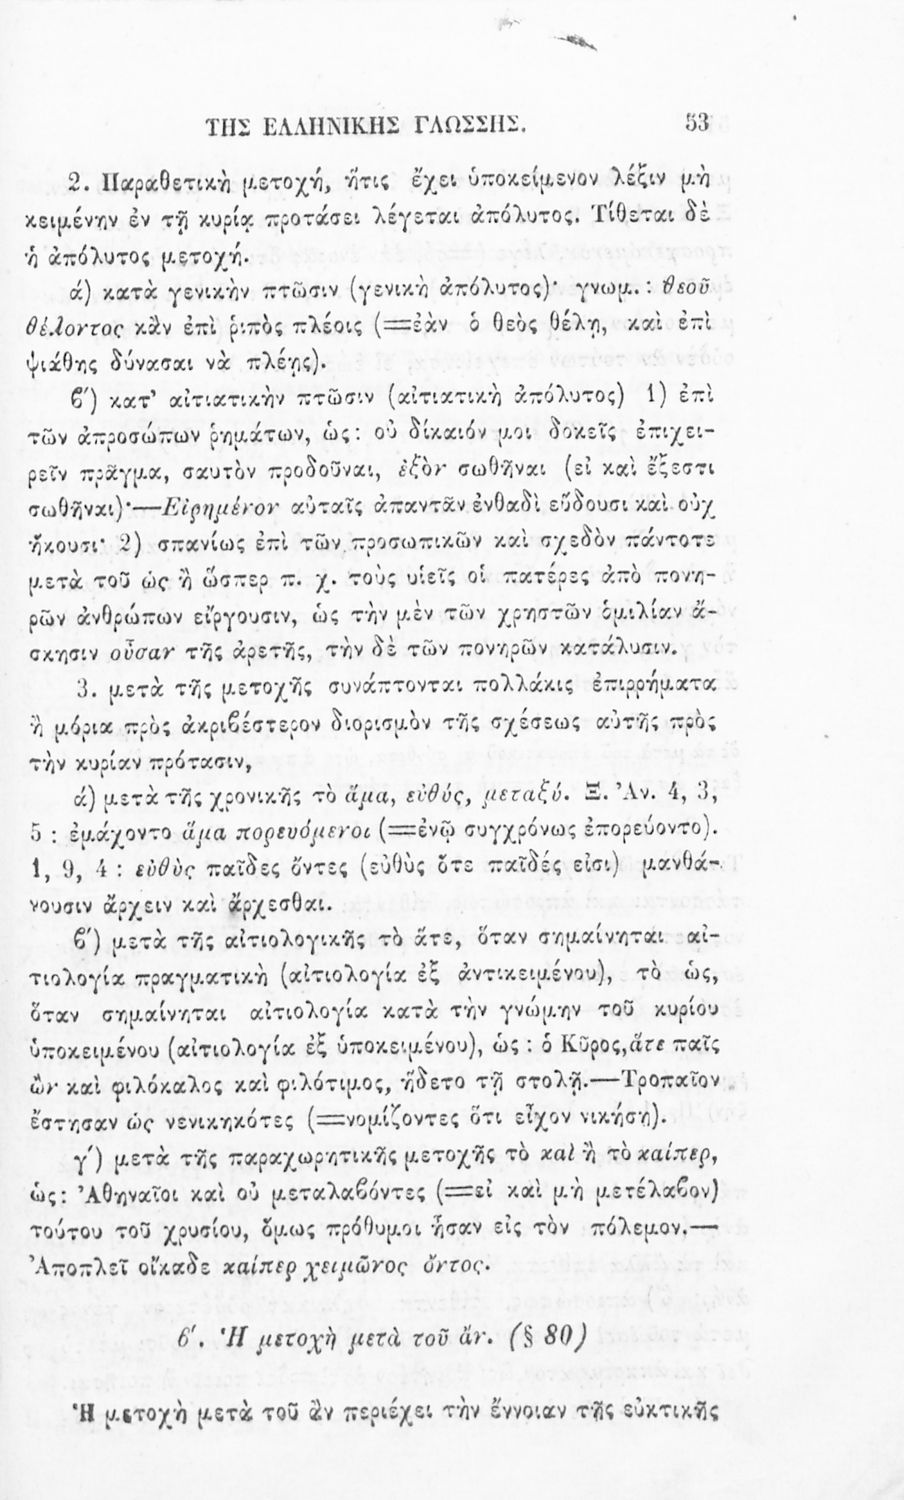 ΤΗΣ ΕΛΛΗΝΙΚΗΣ ΓΛΩΣΣΗΣ. 53
2. Παραθετικὴ μετοχή, ἥτις ἔχει ὑποκείμενον λέξιν μὴ
κειμένην ἐν τῇ κυρίᾳ προτάσει λέγεται ἀπόλυτος. Τίθεται δὲ
ἡ ἀπόλυτος μετοχή.
ά) κατὰ γενικὴν πτῶσιν (γενικὴ ἀπόλυτος)· γνωμ.: θεοῦ
θέλοντος κἂν ἐπὶ ῥιπὸς πλέοις (=ἐὰν ὁ θεὸς θέλῃ, καὶ ἐπὶ
ψιάθης δύνασαι νὰ πλέῃς).
ϐ′) κατ' αἰτιατικὴν πτῶσιν (αἰτιατικὴ ἀπόλυτος) 1) ἐπὶ
τῶν ἀπροσώπων ῥημάτων, ὡς: οὐ δίκαιόν μοι δοκεῖς ἐπιχει-
ρεῖν πρᾶγμα, σαυτὸν προδοῦναι, ἐξὸν σωθῆναι (εἰ καὶ ἔξεστι
σωθῆναι)·—Εἰρημένον αὐταῖς ἀπαντᾶν ἐνθαδὶ εὕδουσι καὶ οὐχ
ἥκουσι· 2) σπανίως ἐπὶ τῶν προσωπικῶν καὶ σχεδὸν πάντοτε
μετὰ τοῦ ὡς ἢ ὥσπερ π. χ. τοὺς υἱεῖς οἱ πατέρες ἀπὸ πονη-
ρῶν ἀνθρώπων εἴργουσιν, ὡς τὴν μὲν τῶν χρηστῶν ὁμιλίαν ἄ-
σκησιν οὖσαν τῆς ἀρετῆς, τὴν δὲ τῶν πονηρῶν κατάλυσιν.
3. μετὰ τῆς μετοχῆς συνάπτονται πολλάκις ἐπιρρήματα
ἢ μόρια πρὸς ἀκριϐέστερον διορισμὸν τῆς σχέσεως αὐτῆς πρὸς
τὴν κυρίαν πρότασιν,
ά) μετὰ τῆς χρονικῆς τὸ ἅμα, εὐθύς, μεταξύ. Ξ. Ἀν. 4, 3,
5 : ἐμάχοντο ἅμα πορευόμενοι (=ἐνῷ συγχρόνως ἐπορεύοντο).
1, 9, 4 : εὐθὺς παῖδες ὄντες (εὐθὺς ὅτε παῖδές εἰσι) μανθά-
νουσιν ἄρχειν καὶ ἄρχεσθαι.
ϐ′) μετὰ τῆς αἰτιολογικῆς τὸ ἅτε, ὅταν σημαίνηται αἰ-
τιολογία πραγματικὴ (αἰτιολογία ἐξ ἀντικειμένου), τὸ ὡς,
ὅταν σημαίνηται αἰτιολογία κατὰ τὴν γνώμην τοῦ κυρίου
ὑποκειμένου (αἰτιολογία ἐξ ὑποκειμένου), ὡς : ὁ Κῦρος, ἅτε παῖς
ὢν καὶ φιλόκαλος καὶ φιλότιμος, ἥδετο τῇ στολῇ.—Τροπαῖον
ἔστησαν ὡς νενικηκότες (=νομίζοντες ὅτι εἶχον νικήσῃ).
γ′) μετὰ τῆς παραχωρητικῆς μετοχῆς τὸ καὶ ἢ τὸ καίπερ,
ὡς: Ἀθηναῖοι καὶ οὐ μεταλαϐόντες (=εἰ καὶ μὴ μετέλαϐον)
τούτου τοῦ χρυσίου, ὅμως πρόθυμοι ἦσαν εἰς τὸν πόλεμον.—
Ἀποπλεῖ οἴκαδε καίπερ χειμῶνος ὄντος.
ϐ′. Ἡ μετοχὴ μετὰ τοῦ ἄν. (§ 80)
Ἡ μετοχὴ μετὰ τοῦ ἂν περιέχει τὴν ἔννοιαν τῆς εὐκτικῆς